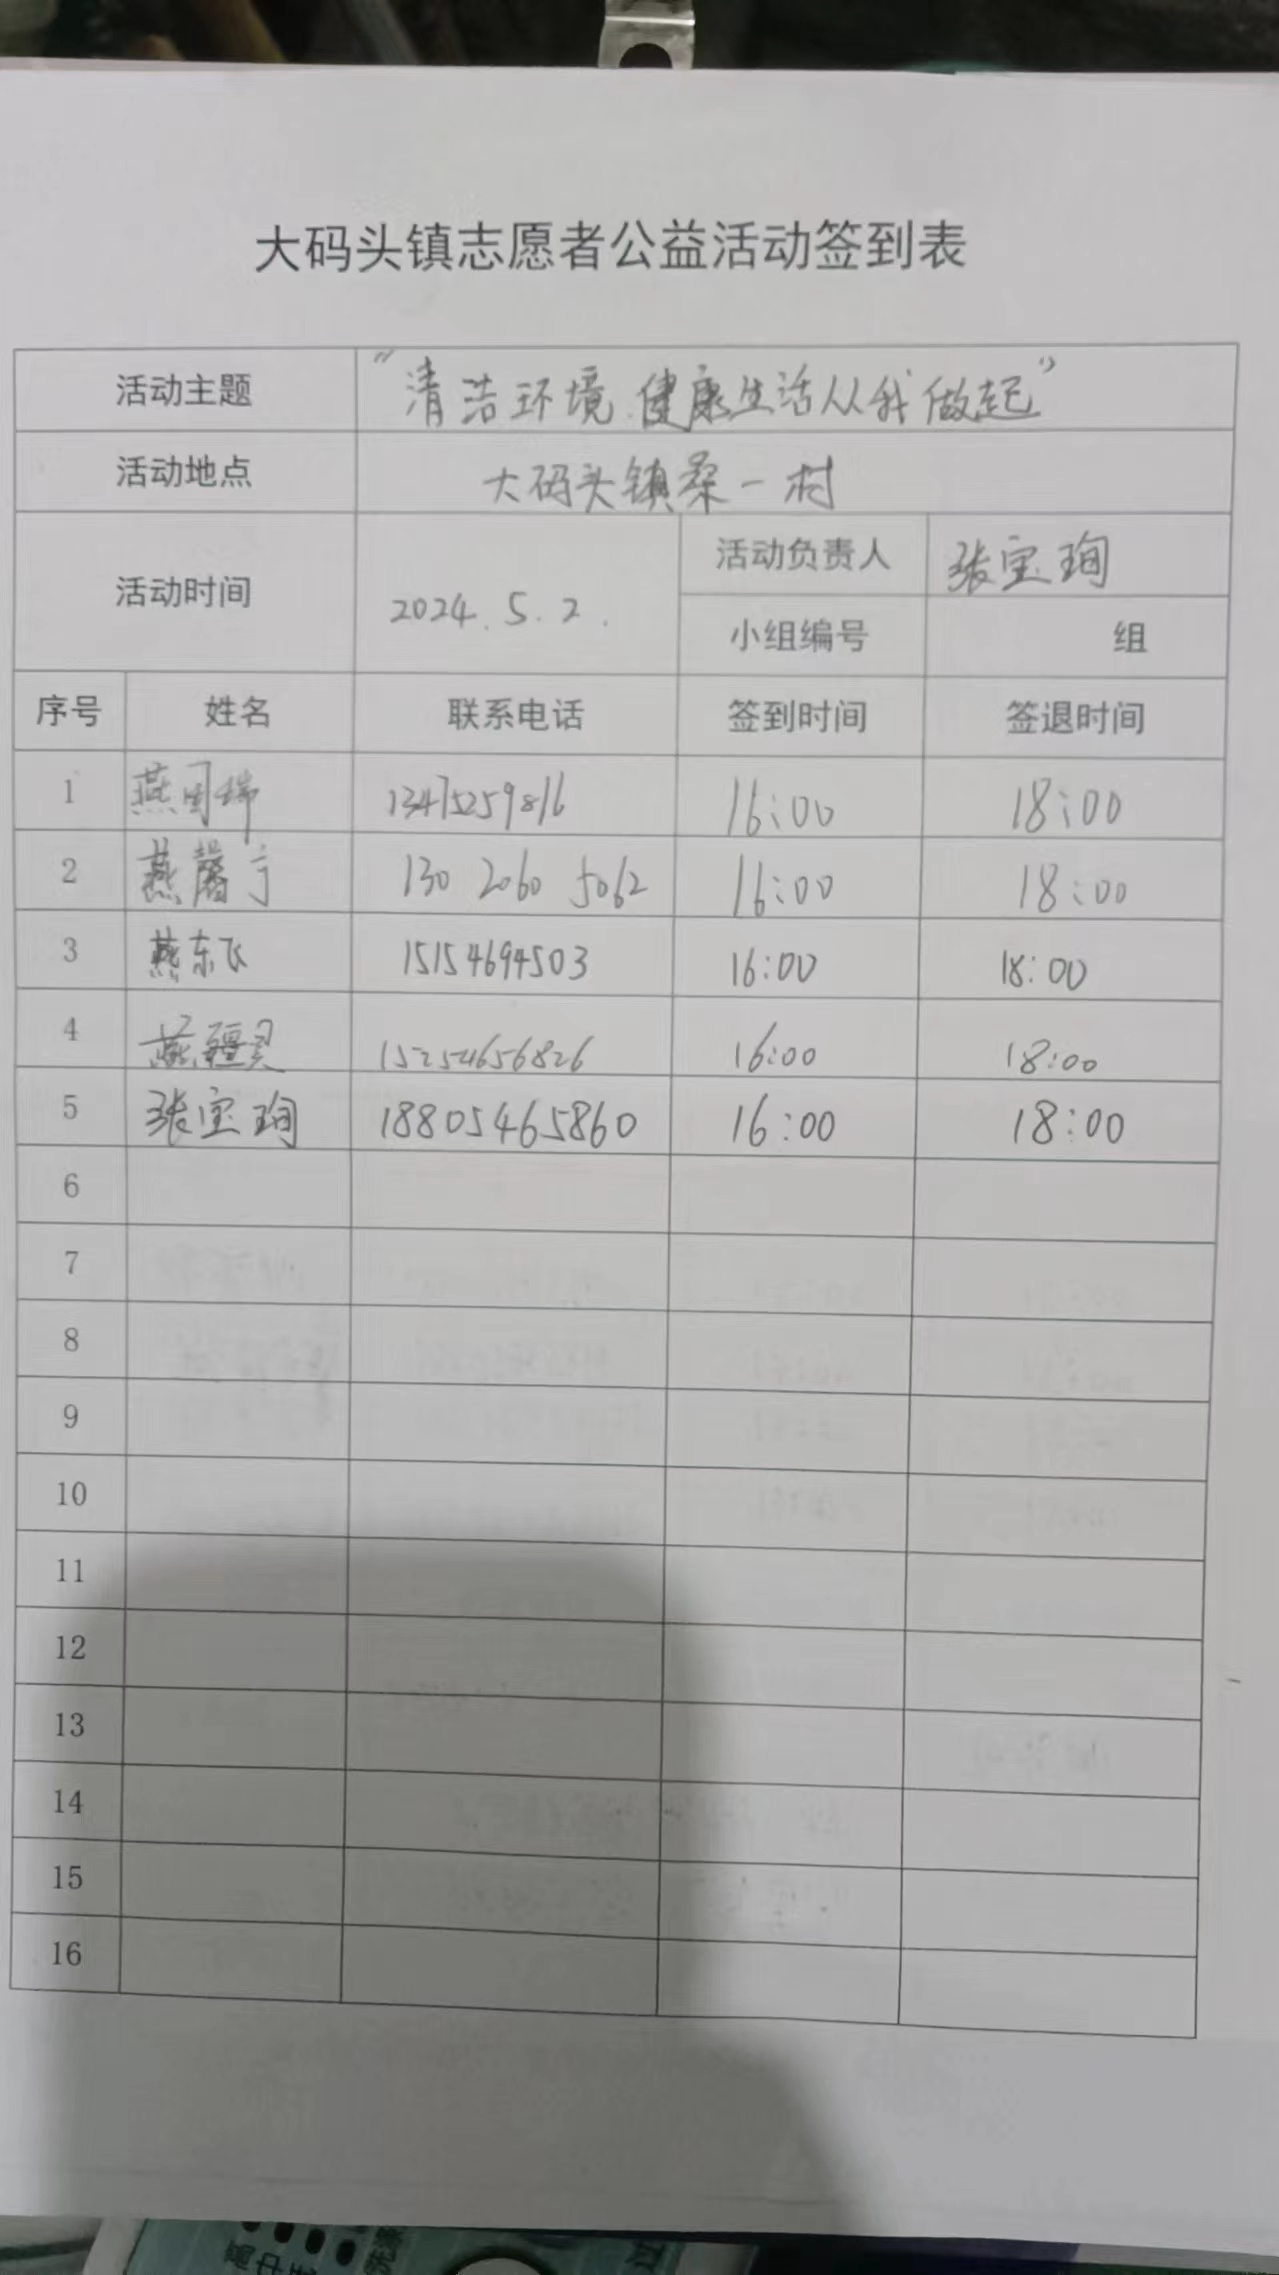 大码头镇志愿者公益活动签到表
活动主题 “清洁环境 健康生活从我做起”
活动地点 大码头镇桑一村
活动时间 2024.5.2. 活动负责人 张宝珣
小组编号 组
序号 姓名 联系电话 签到时间 签退时间
1 燕 13475259816 16:00 18:00
2 燕馨宁 130 2060 5062 16:00 18:00
3 燕东飞 15154694503 16:00 18:00
4 燕疆灵 15254656826 16:00 18:00
5 张宝珣 18805465860 16:00 18:00
6
7
8
9
10
11
12
13
14
15
16
高中